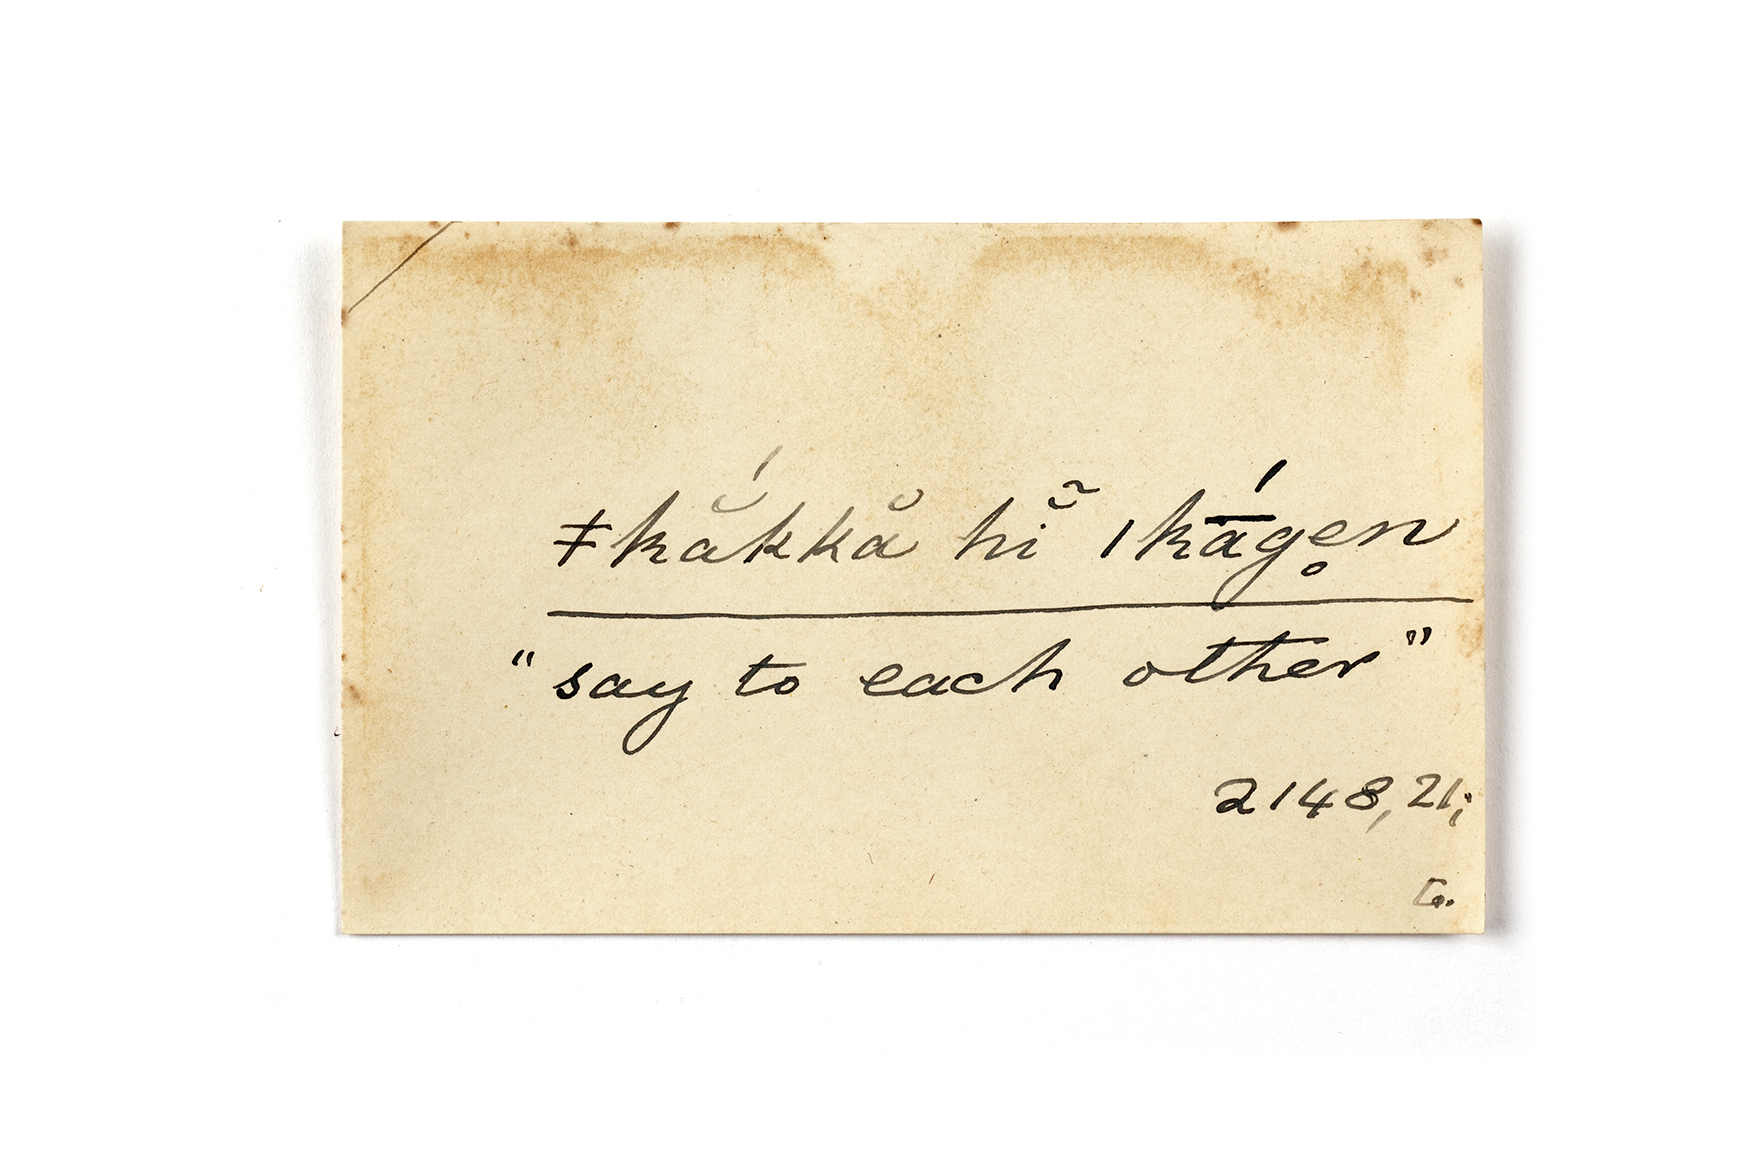 ǂkắkkă hĭ̃ ǀkā́ge̥n
"say to each other"
2148, 21;